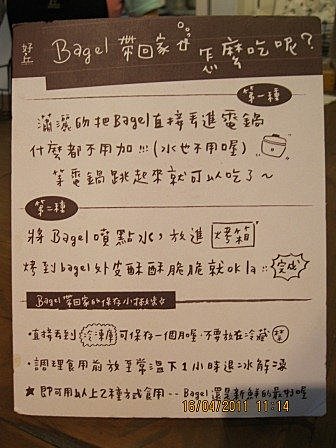 好丘
Bagel 帶回家 怎麼吃呢?
第一種
瀟灑的把Bagel直接丟進電鍋
什麼都不用加!!!(水也不用喔)
等電鍋跳起來就可以吃了~
第二種
將 Bagel噴點水,放進 烤箱
烤到bagel外皮酥酥脆脆就ok la!! 完成
Bagel 帶回家的保存小撇步
·直接丟到 冷凍庫 可保存一個月喔·不要放在冷藏
·調理食用前放至常溫下1小時退冰解凍
★即可用以上2種方式食用--Bagel還是新鮮的最好喔
16/04/2011 11:14